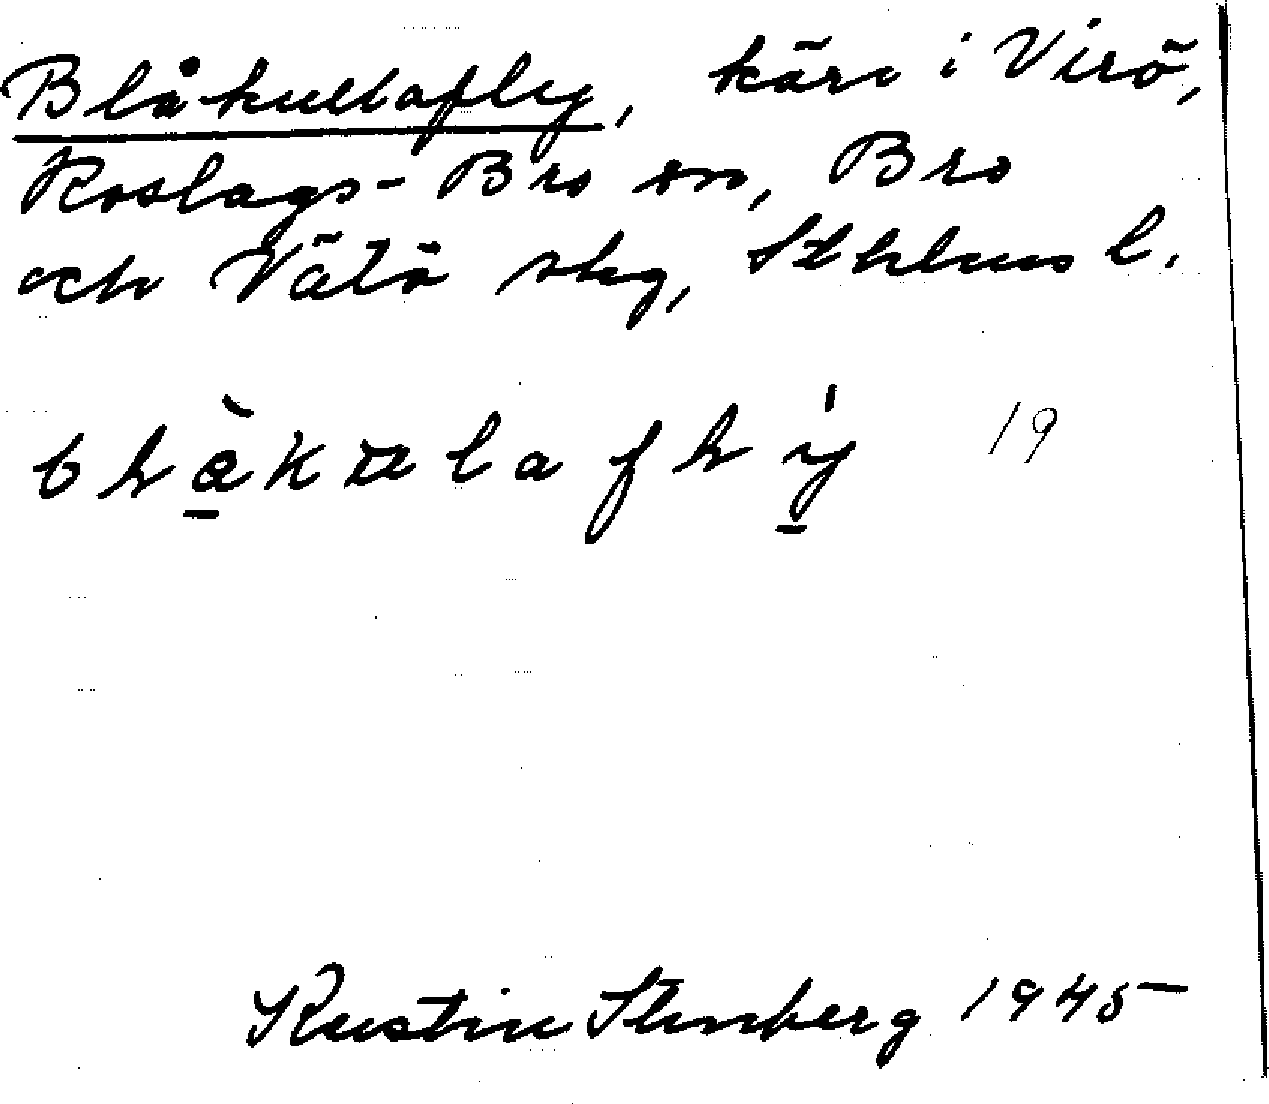 Blåkullafly, kärr i Virö,
Roslags-Bro sn, Bro
och Vätö skg, Sthlms l.
19
Kerstin Stenberg 1945